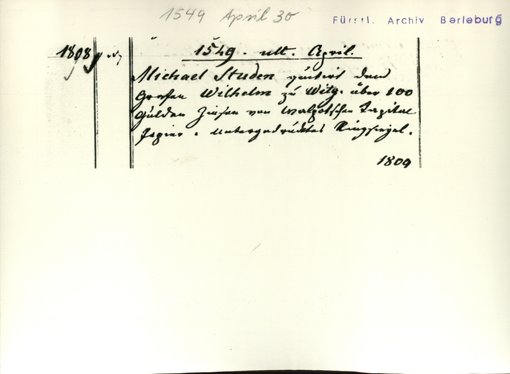 1549 April 30
Fürstl. Archiv Berleburg
1808
1549. ult. April.
Michael Studen quitirt dem
Grafen Wilhelm zu Witg. über 100
Gulden Zinsen von Kapital
Papier. untergedrücktes Ringsiegel.
1809